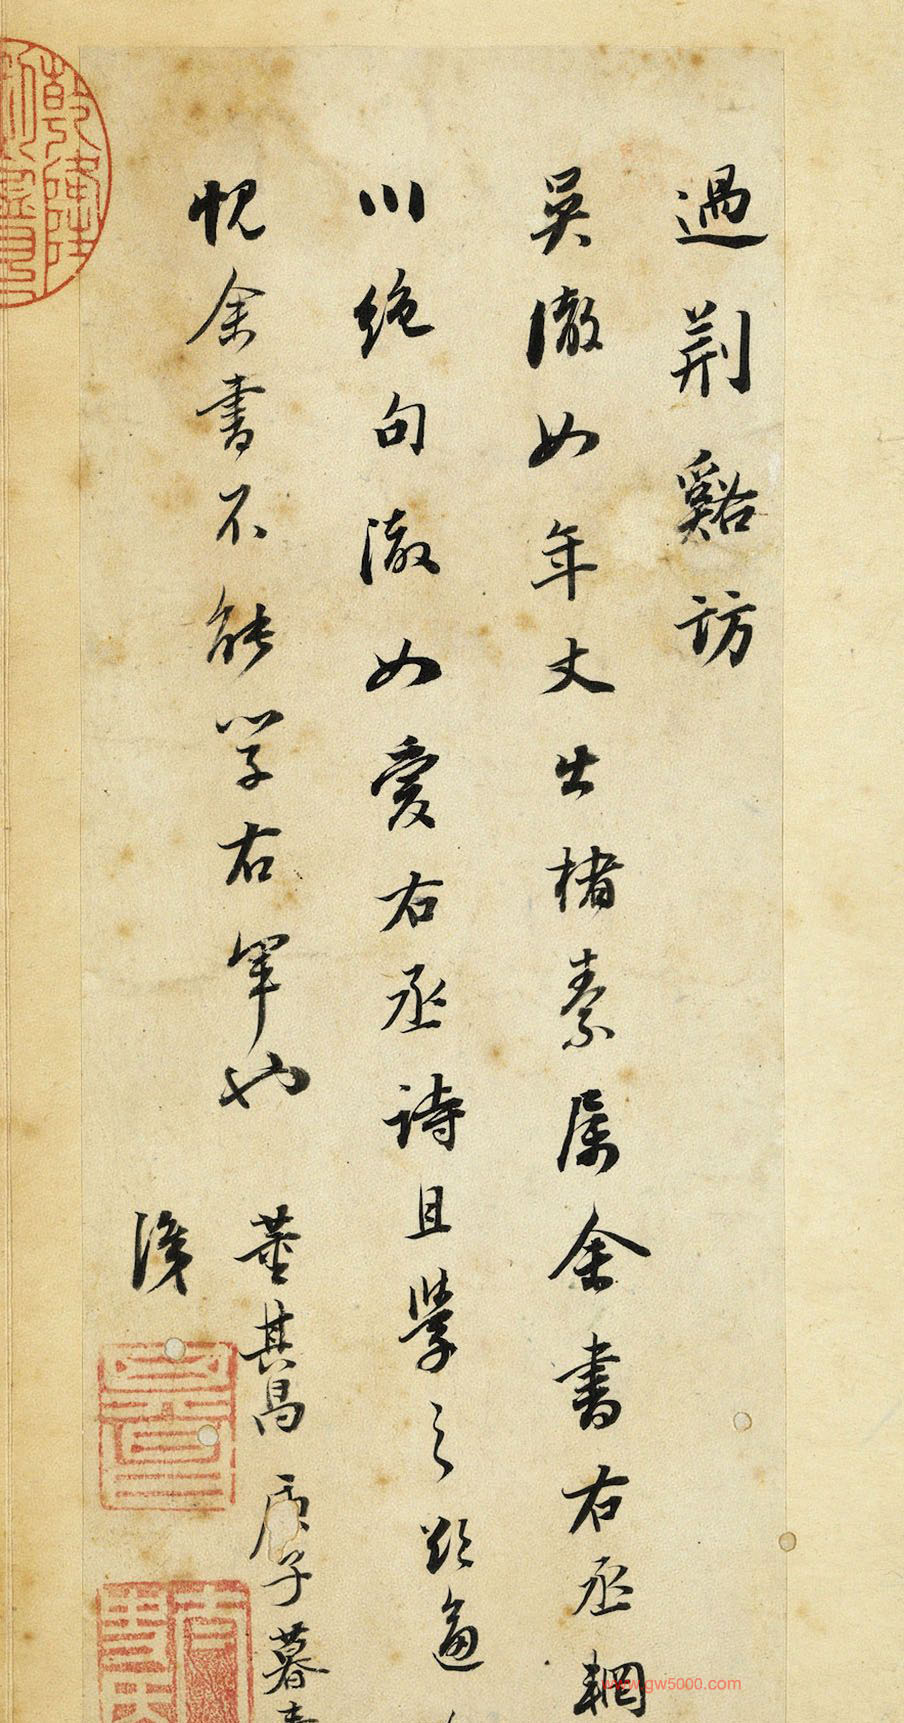 過荆谿訪
吳澈如年丈出楮素属余書右丞輞
川絶句澈如愛右丞詩且學之欵逼
愧余書不能学右軍也
董其昌庚子暮春
識
乾隆
www.gw5000.com